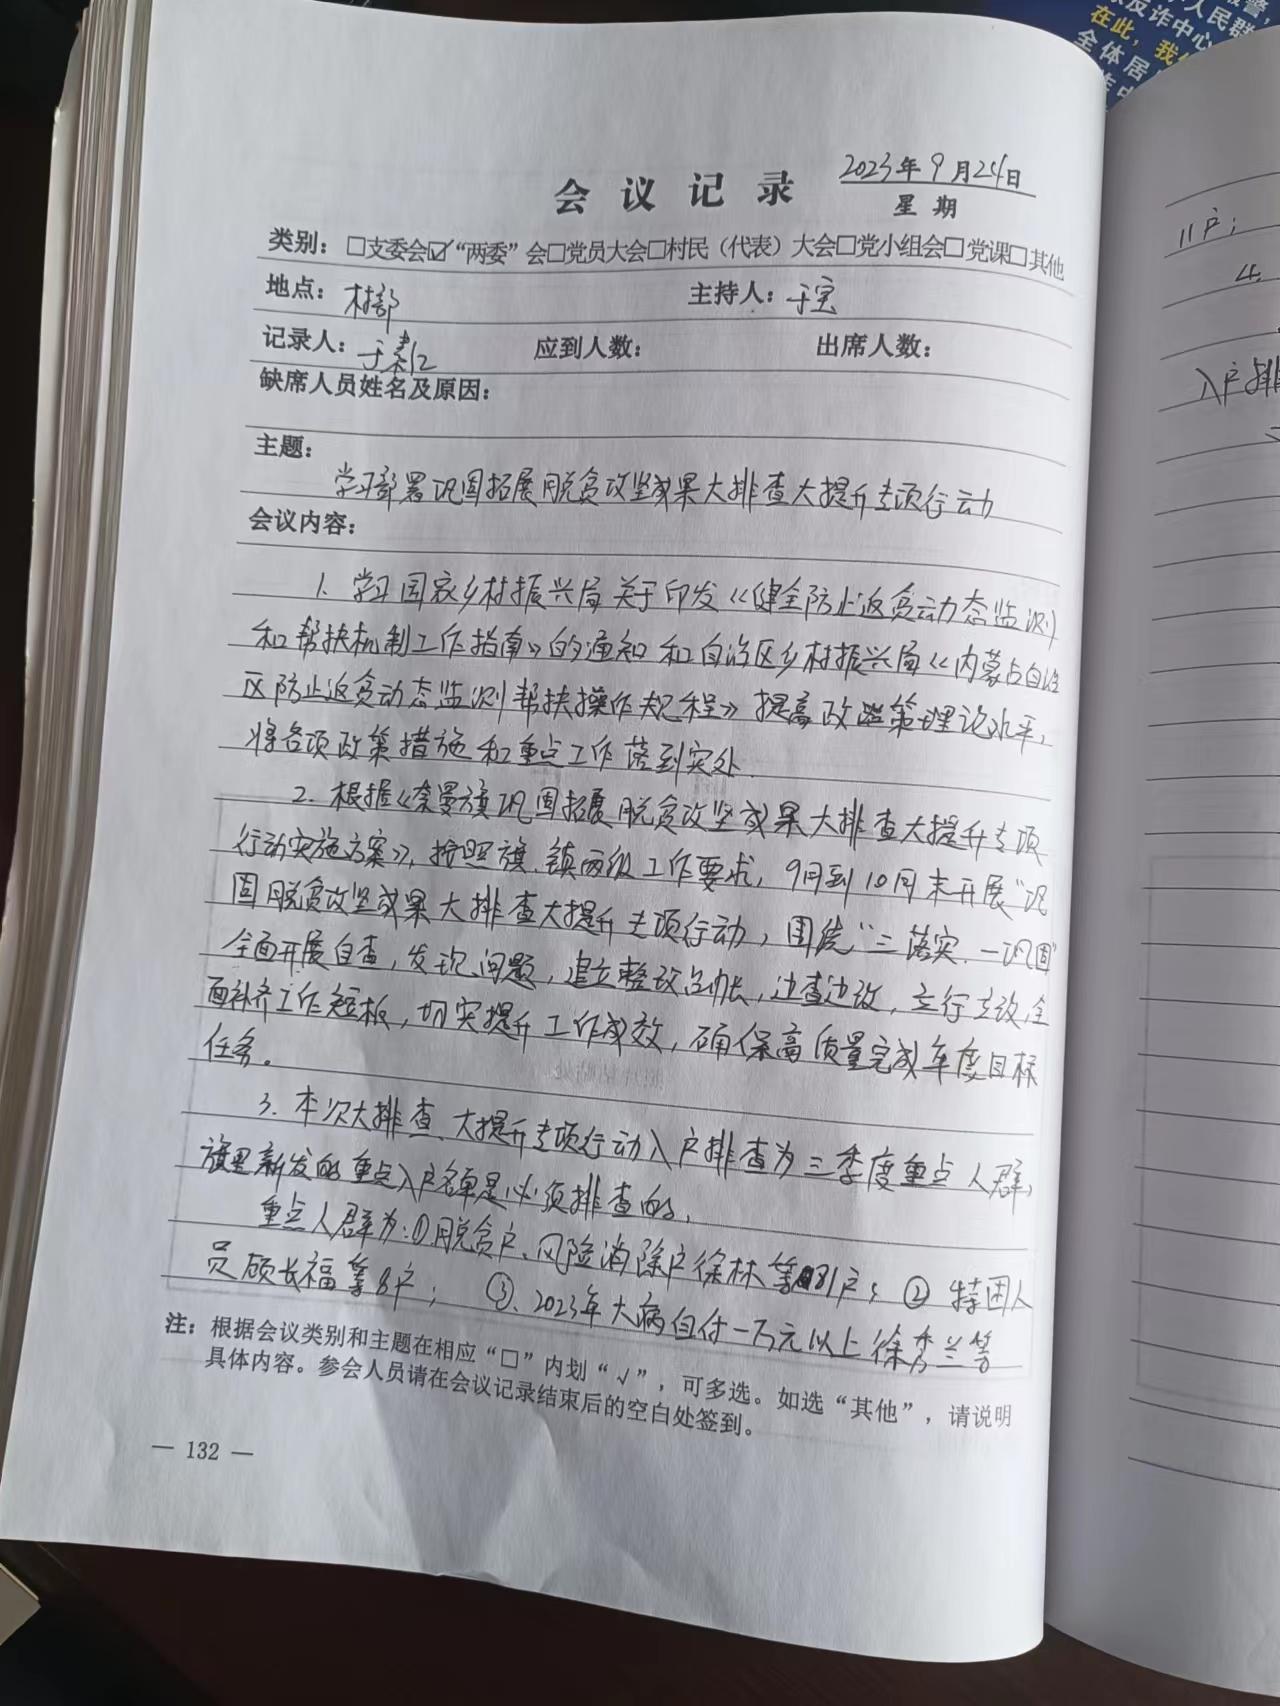 会议记录
2023年9月24日
星期
类别：□支委会☑“两委”会□党员大会□村民（代表）大会□党小组会□党课□其他
地点：村部 主持人：于宝
记录人：于 应到人数： 出席人数：
缺席人员姓名及原因：
主题：
学习部署巩固拓展脱贫攻坚成果大排查大提升专项行动
会议内容：
1. 学习国家乡村振兴局关于印发《健全防止返贫动态监测
和帮扶机制工作指南》的通知和自治区乡村振兴局《内蒙古自治
区防止返贫动态监测帮扶操作规程》提高政策理论水平，
将各项政策措施和重点工作落到实处.
2. 根据《奈曼旗巩固拓展脱贫攻坚成果大排查大提升专项
行动实施方案》，按照旗、镇两级工作要求，9月到10月末开展“巩
固脱贫攻坚成果大排查大提升专项行动，围绕“三落实、一巩固”
全面开展自查，发现问题，建立整改台帐，边查边改，立行立改，全
面补齐工作短板，切实提升工作成效，确保高质量完成年度目标
任务。
3. 本次大排查、大提升专项行动入户排查为三季度重点人群，
旗里新发的重点入户名单是必须排查的，
重点人群为：①脱贫户、风险消除户徐林等81户；② 特困人
员顾长福等8户； ③、2023年大病自付一万元以上徐秀兰等
注：根据会议类别和主题在相应“□”内划“√”，可多选。如选“其他”，请说明
具体内容。参会人员请在会议记录结束后的空白处签到。
— 132 —
11户；
4.
入户排
反诈中心
人民群
在此，我
全体居